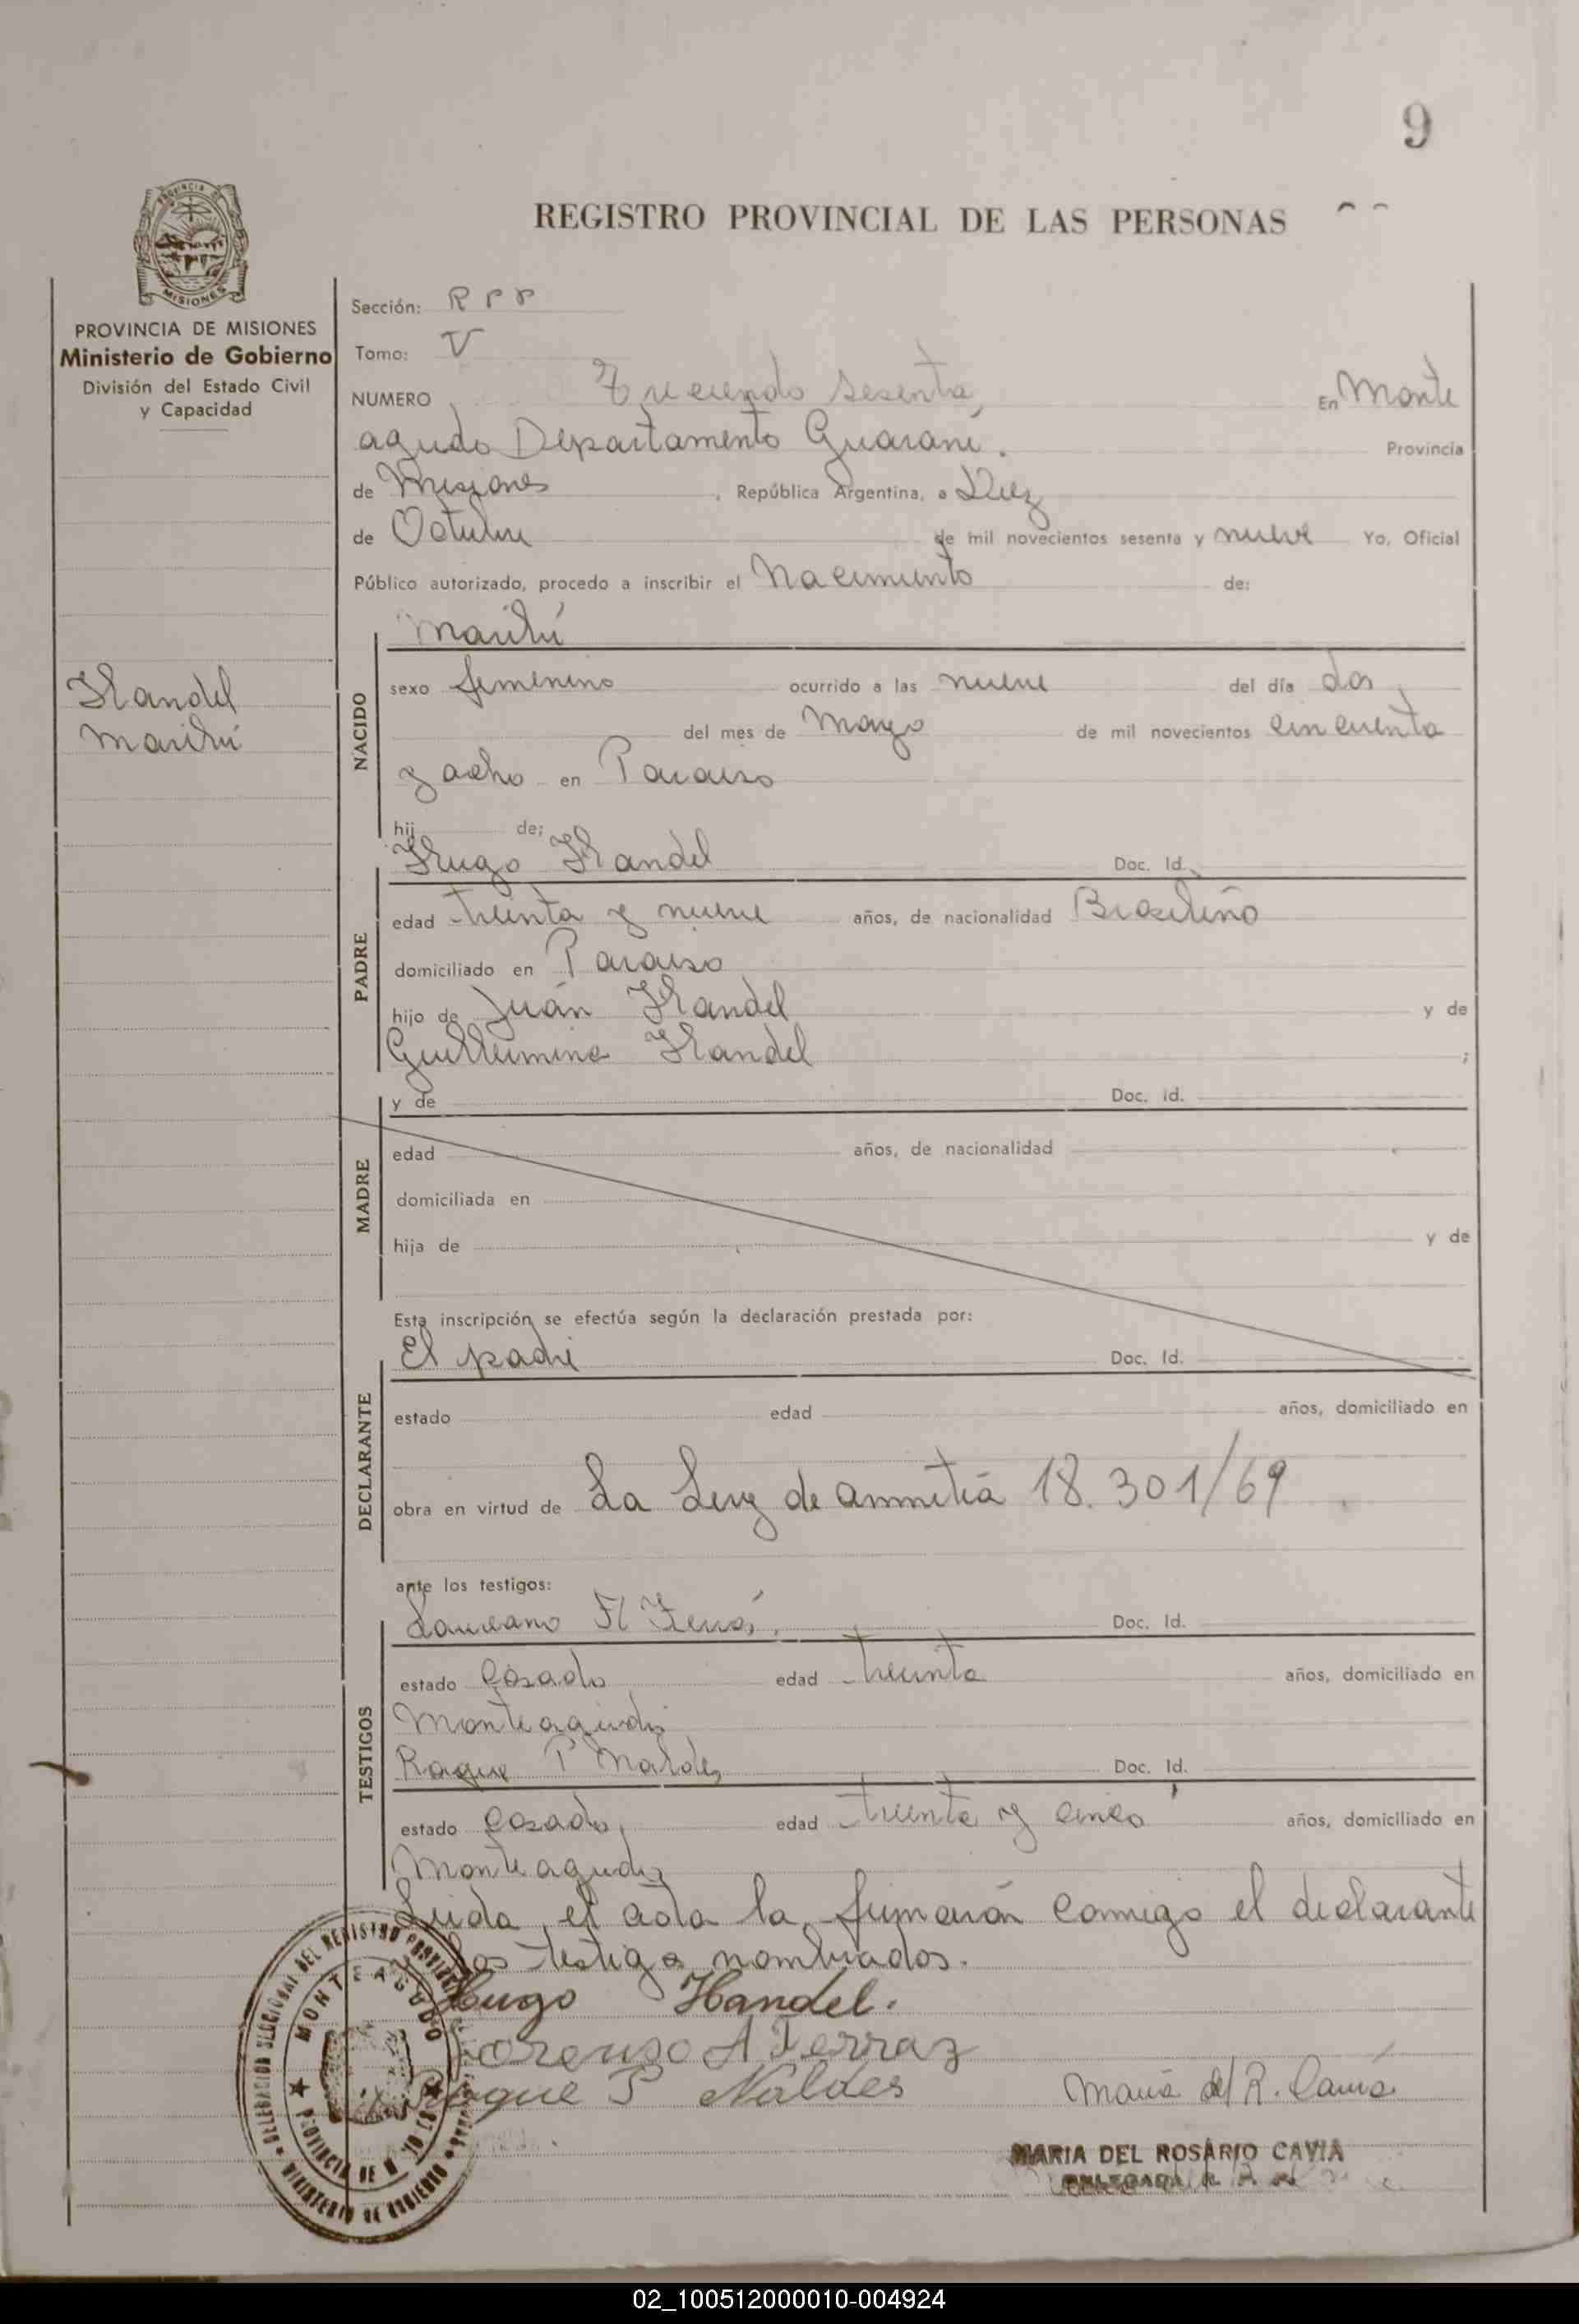 9
REGISTRO PROVINCIAL DE LAS PERSONAS
PROVINCIA DE MISIONES
Ministerio de Gobierno
División del Estado Civil
y Capacidad
Sección: R P P
Tomo: V
NUMERO Treciendo sesenta, En Monte
agudo Departamento Guaraní. Provincia
de Misiones, República Argentina, a Diez
de Octubre de mil novecientos sesenta y nueve Yo, Oficial
Público autorizado, procedo a inscribir el Nacimiento de:
Handel
Marilú
NACIDO
Marilú
sexo femenino ocurrido a las nueve del día dos
del mes de Mayo de mil novecientos cincuenta
y ocho en Paraiso
hij de;
PADRE
Hugo Handel Doc. Id.
edad treinta y nueve años, de nacionalidad Brasileño
domiciliado en Paraiso
hijo de Juán Handel y de
Guillermina Handel ;
MADRE
y de Doc. Id.
edad años, de nacionalidad
domiciliada en
hija de y de
Esta inscripción se efectúa según la declaración prestada por:
DECLARANTE
El padre Doc. Id.
estado edad años, domiciliado en
obra en virtud de La Ley de amnitiá 18.301/69
ante los testigos:
TESTIGOS
Doc. Id.
estado Casado edad treinta años, domiciliado en
Monteagudo
Roque P Naldes Doc. Id.
estado Casado, edad treinta y cinco años, domiciliado en
Monteagudo
Leida el acta la firmarán conmigo el declarante
los testigos nombrados.
Hugo Handel.
Lorenso A Ferraz
Roque P Naldes
María del R. Cavia
MARIA DEL ROSARIO CAVIA
DELEGADA
DELEGACION SECCIONAL DEL REGISTRO PROVINCIAL
MONTEAGUDO
PROVINCIA DE
MINISTERIO DE GOBIERNO
02_100512000010-004924